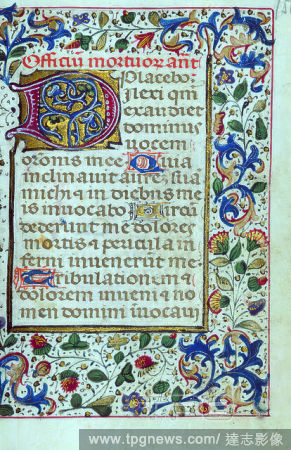 Officiu mortuor ant
Placebo
Dilexi qm
exaudiet
dominus
vocem
oronis mee Quia
inclinavit aurez sua
michi & in diebus me
is invocabo Circu
dederunt me dolores
mortis & pericula in
ferni invenerut me
Tribulationem &
dolorem inveni & no
men domini invocavi
www.tpgnews.com / 達志影像